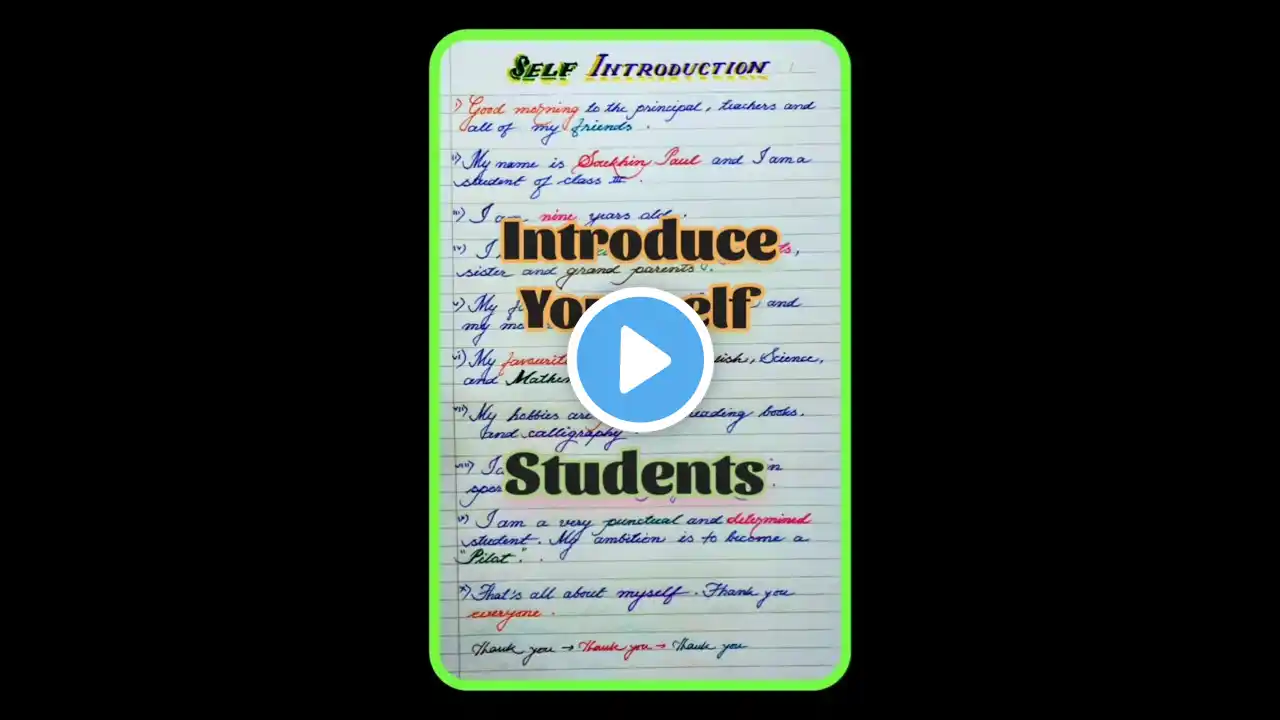 SELF INTRODUCTION
i) Good morning to the principal, teachers and
all of my friends.
ii) My name is Soukhin Paul and I am a
student of class III.
iii) I am nine years old.
iv) I
sister and grand parents.
v) My and
my
vi) My favourite Science,
and
vii) My hobbies are reading books,
and calligraphy
viii) I
ix) I am a very punctual and determined
student. My ambition is to become a
"Pilot".
x) That's all about myself. Thank you
everyone.
Thank you → Thank you → Thank you
Introduce
Yourself
Students